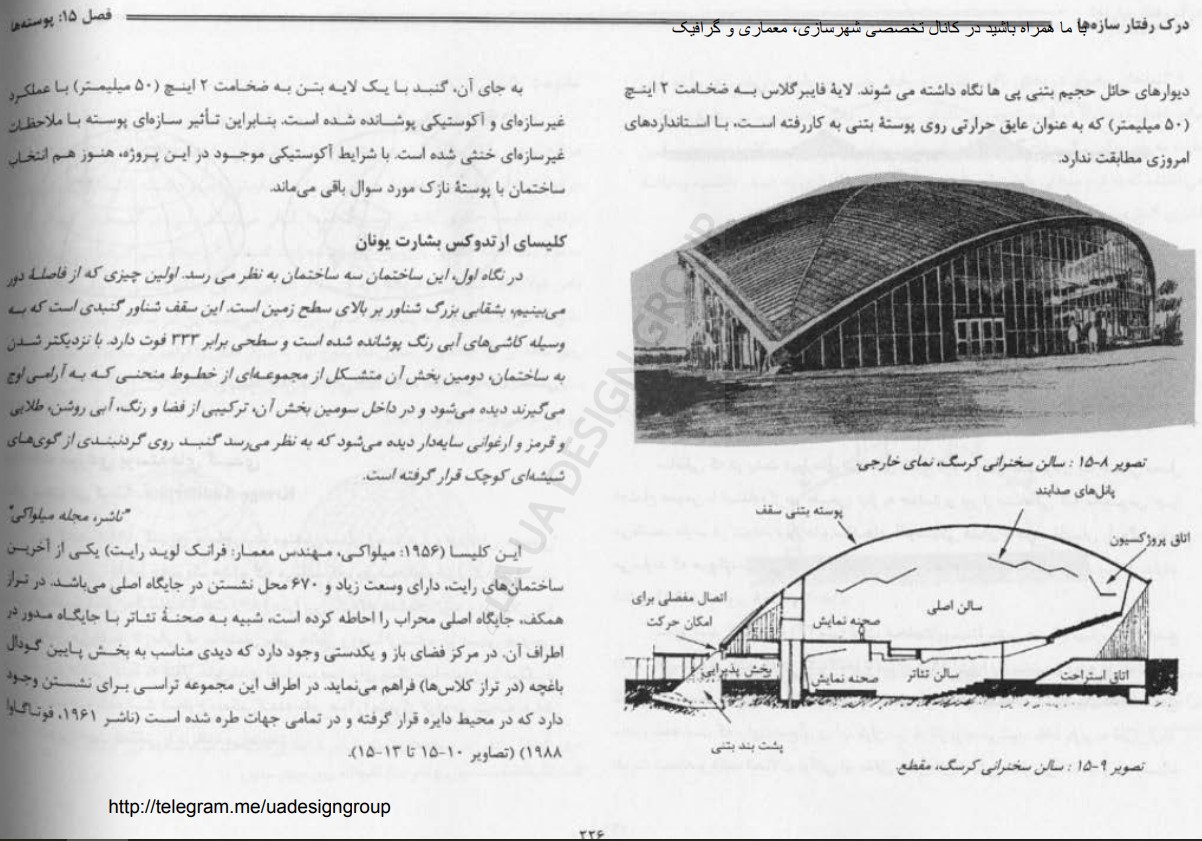 درک رفتار سازه‌ها
با ما همراه باشید در کانال تخصصی شهرسازی، معماری و گرافیک
فصل ۱۵: پوسته‌ها
دیوارهای حائل حجیم بتنی پی ها نگاه داشته می شوند. لایهٔ فایبرگلاس بـه ضخامت ۲ اینـچ
(۵۰ میلیمتر) که به عنوان عایق حرارتی روی پوستهٔ بتنی به کاررفته است، بـا اسـتانداردهای
امروزی مطابقت ندارد.
تصویر ۸-۱۵ : سالن سخنرانی کرسگ، نمای خارجی.
پانل‌های صدابند
پوسته بتنی سقف
اتاق پروژکسیون
اتصال مفصلی برای
امکان حرکت
سالن اصلی
صحنه نمایش
بخش پذیرایی
صحنه نمایش
سالن تئاتر
اتاق استراحت
پشت بند بتنی
تصویر ۹-۱۵ : سالن سخنرانی کرسگ، مقطع.
به جای آن، گنبد بـا یـک لایـه بتـن بـه ضخـامت ۲ اینـچ (۵۰ میلیمـتر) بـا عملکـرد
غیرسازه‌ای و آکوستیکی پوشـانده شـده اسـت. بنـابراین تـأثیر سـازه‌ای پوسـته بـا ملاحظـات
غیرسازه‌ای خنثی شده است. با شرایط آکوستیکی موجـود در ایـن پـروژه، هنـوز هـم انتخـاب
ساختمان با پوستهٔ نازک مورد سوال باقی می‌ماند.
کلیسای ارتدوکس بشارت یونان
در نگاه اول، این ساختمان سه ساختمان به نظر می رسد. اولین چیزی که از فاصلـهٔ دور
می‌بینیم، بشقابی بزرگ شناور بر بالای سطح زمین است. این سقف شناور گنبدی است که بـه
وسیله کاشی‌های آبی رنگ پوشانده شده است و سطحی برابر ۳۳۳ فوت دارد. با نزدیکتر شـدن
به ساختمان، دومین بخش آن متشـکل از مجموعـه‌ای از خطـوط منحنـی کـه بـه آرامـی اوج
می‌گیرند دیده می‌شود و در داخل سومین بخش آن، ترکیبی از فضا و رنگ، آبی روشن، طلایی
و قرمز و ارغوانی سایه‌دار دیده می‌شود که به نظر می‌رسد گنبـد روی گردنبنـدی از گوی‌هـای
شیشه‌ای کوچک قرار گرفته است.
"ناشر، مجله میلواکی"
ایـن کلیسـا (۱۹۵۶: میلواکـی، مـهندس معمـار: فرانـک لویـد رایـت) یکـی از آخریـن
ساختمان‌های رایت، دارای وسعت زیاد و ۶۷۰ محل نشستن در جایگاه اصلی می‌باشـد. در تـراز
همکف، جایگاه اصلی محراب را احاطه کرده است، شبیه به صحنهٔ تئـاتر بـا جایگـاه مـدور در
اطراف آن. در مرکز فضای باز و یکدستی وجود دارد که دیدی مناسب به بخـش پـایین گـودال
باغچه (در تراز کلاس‌ها) فراهم می‌نماید. در اطراف این مجموعه تراسـی بـرای نشسـتن وجـود
دارد که در محیط دایره قرار گرفته و در تمامی جهات طره شده است (ناشـر ۱۹۶۱، فوتـاگـاوا
۱۹۸۸) (تصاویر ۱۰-۱۵ تا ۱۳-۱۵).
UA DESIGN GROUP
http://telegram.me/uadesigngroup
۲۲۶